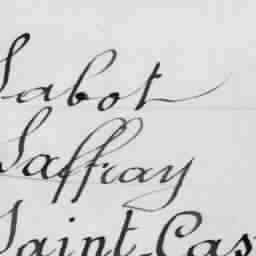 Sabot
Saffray
Saint-Cas